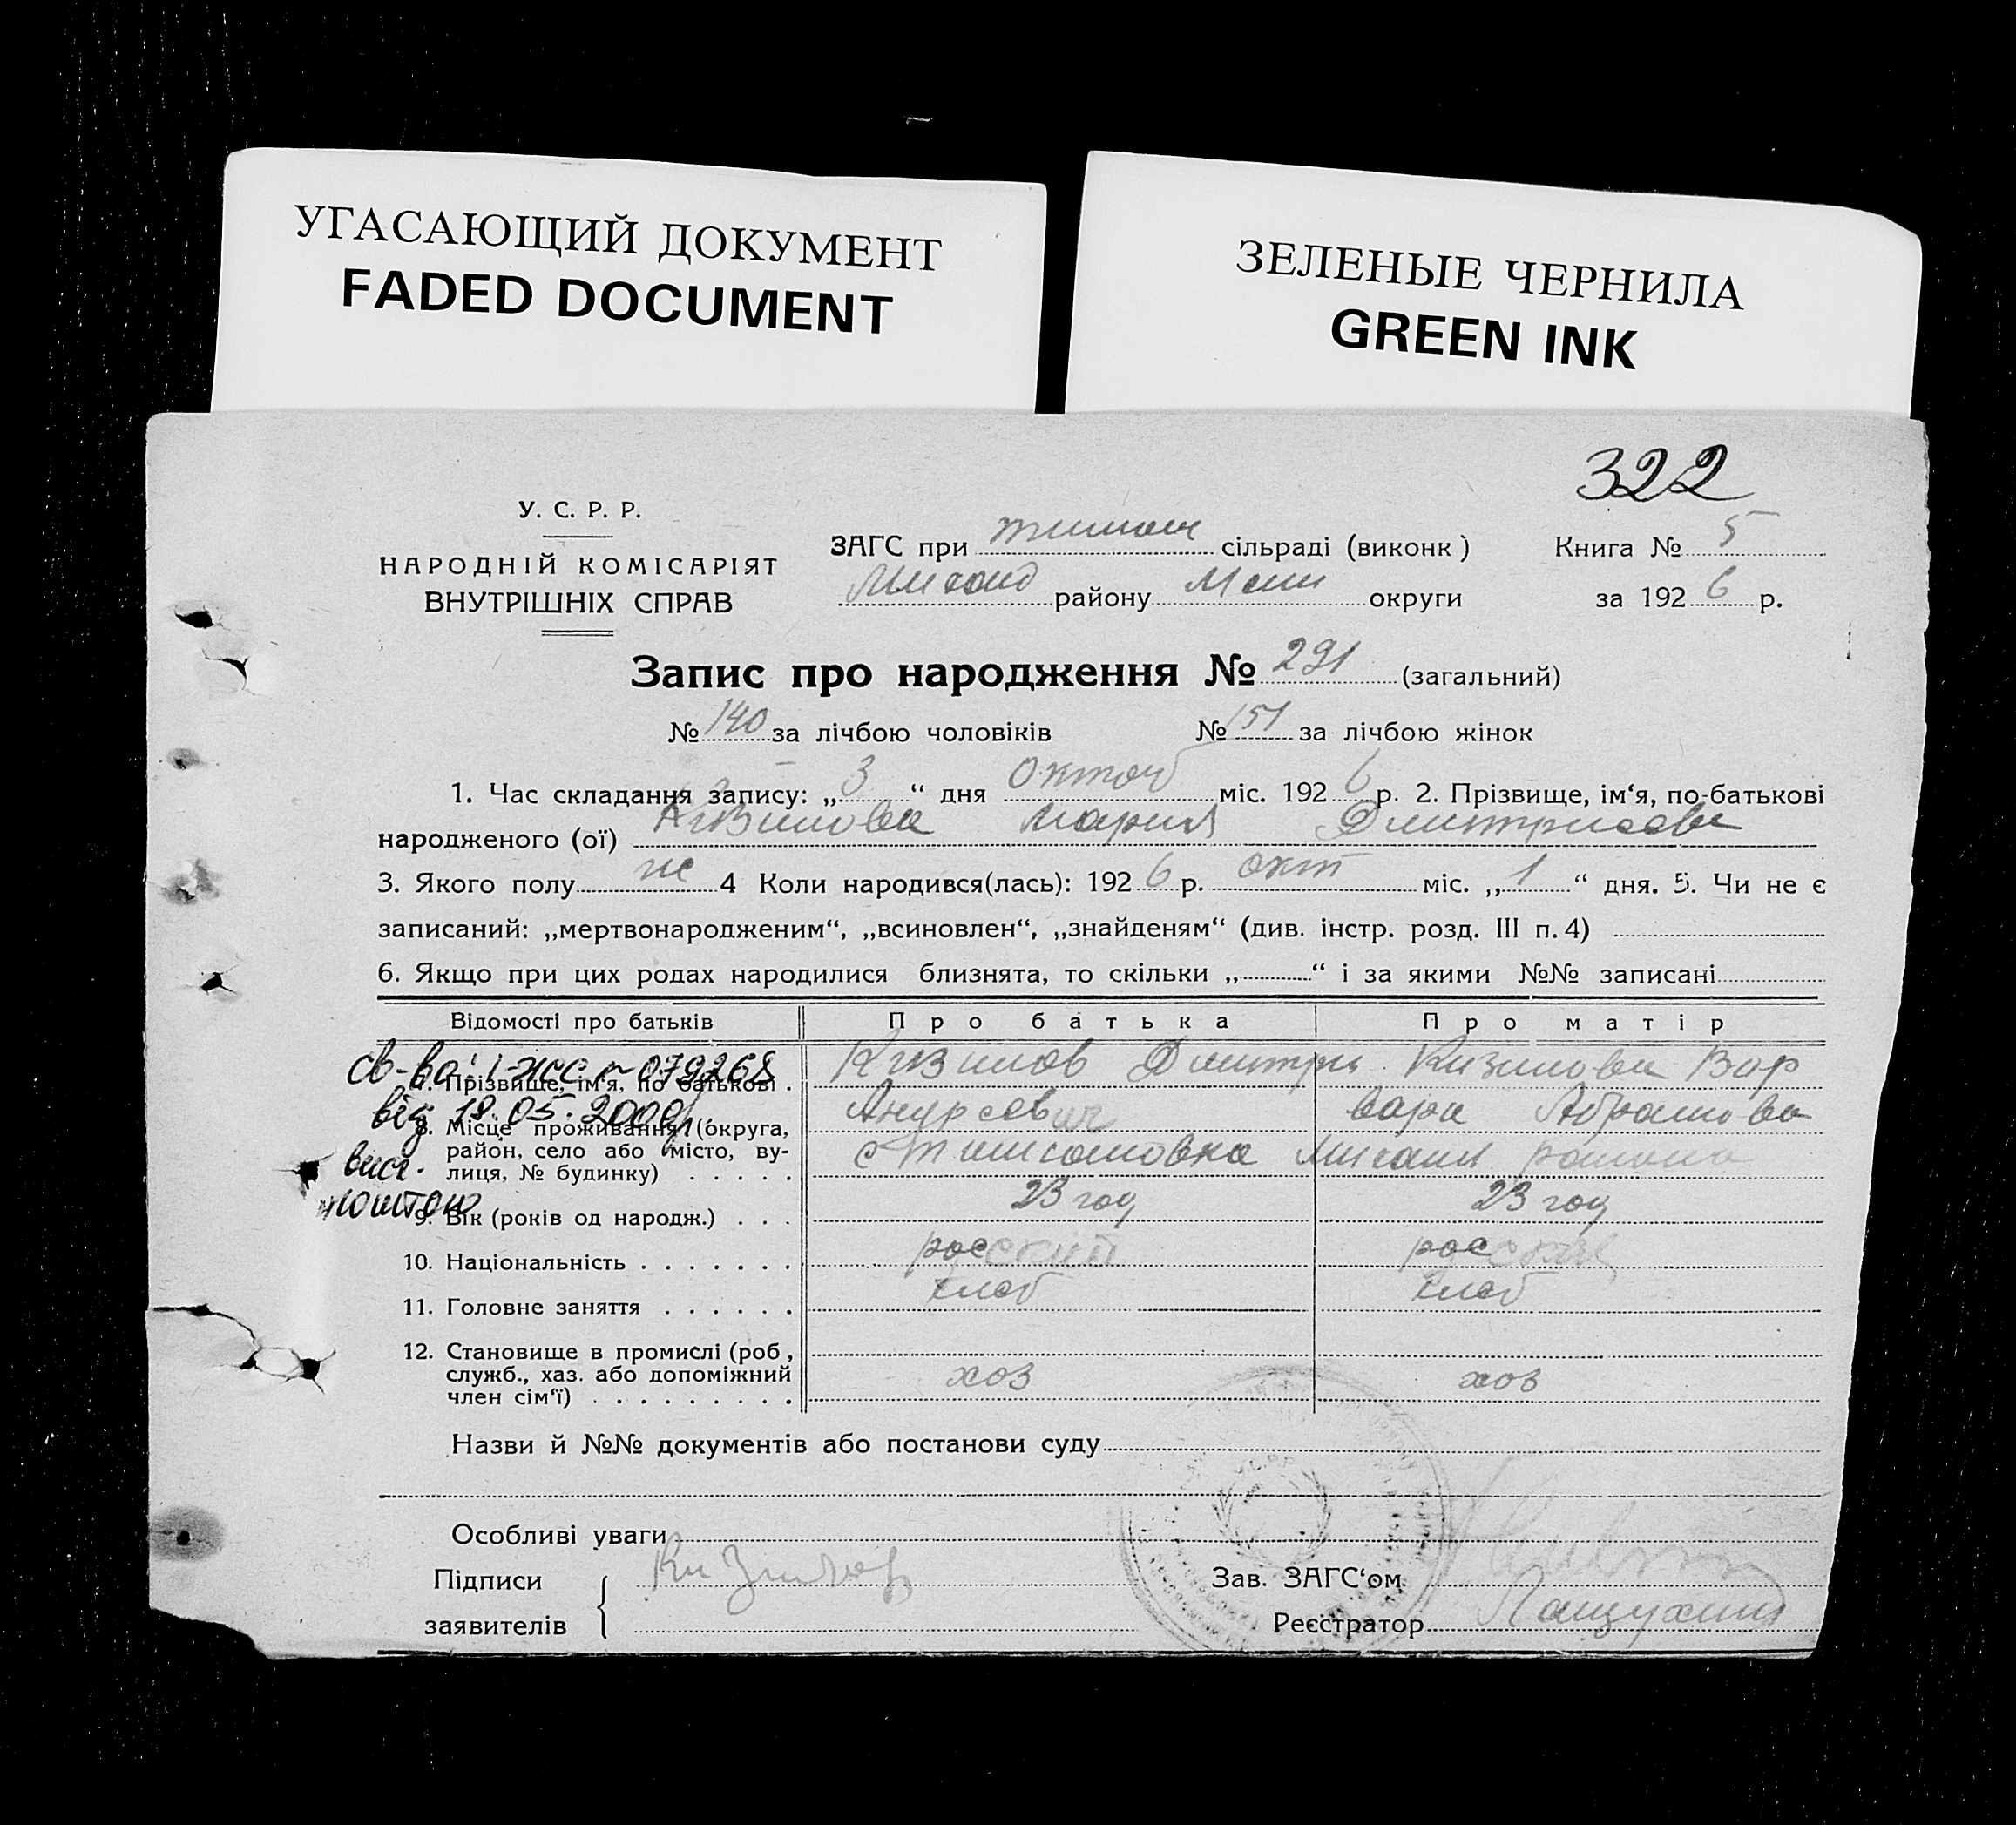 УГАСАЮЩИЙ ДОКУМЕНТ
FADED DOCUMENT
ЗЕЛЕНЫЕ ЧЕРНИЛА
GREEN INK
322
У. С. Р. Р.
НАРОДНІЙ КОМІСАРІЯТ
ВНУТРІШНІХ СПРАВ
ЗАГС при сільраді (виконк) Книга № 5
району округи за 1926 р.
Запис про народження № 291 (загальний)
№ 140 за лічбою чоловіків № 151 за лічбою жінок
1. Час складання запису: „3“ дня октяб міс. 1926 р. 2. Прізвище, ім‘я, по-батькові
народженого (ої) Кизилова Мария Дмитриева
3. Якого полу ж 4 Коли народився(лась): 1926 р. окт міс. „1“ дня. 5. Чи не є
записаний: „мертвонародженим“, „всиновлен“, „знайденям“ (див. інстр. розд. III п. 4)
6. Якщо при цих родах народилися близнята, то скільки „ “ і за якими №№ записані
Відомості про батьків Про батька Про матір
св-во: I-ЖС № 079268
7. Прізвище, ім‘я, по батькові . Кизилов Дмитри Кизилова Вар
від 18.05.2000р.
Андреевич вара Абрамова
8. Місце проживання (округа,
район, село або місто, ву-
лиця, № будинку) . . . . .
висл.
поштою
9. Вік (років од народж.) . . . 23 год 23 год
10. Національність . . . . . . . русский русская
11. Головне заняття . . . . . . хлеб хлеб
12. Становище в промислі (роб,
служб., хаз. або допоміжний
член сім‘ї) . . . . . . . . . хоз хоз
Назви й №№ документів або постанови суду
Особливі уваги
Підписи Кизилов Зав. ЗАГС‘ом
заявителів Реєстратор